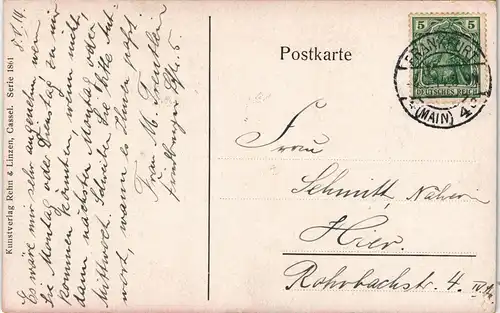 8.1.14.
Es wäre mir sehr angenehm, wenn
Sie Montag oder Dienstag zu mir
kommen könnten, wenn nicht,
dann nächsten Montag oder
Mittwoch. Schreiben Sie bitte Ant-
wort, wann es Ihnen paßt
Frau M.
Kunstverlag Rehn & Linzen, Cassel. Serie 1801
Postkarte
5 5
DEUTSCHES REICH
FRANKFURT
(MAIN) 4
Frau
Schmitt, Näherin
Hier.
Rohrbachstr. 4